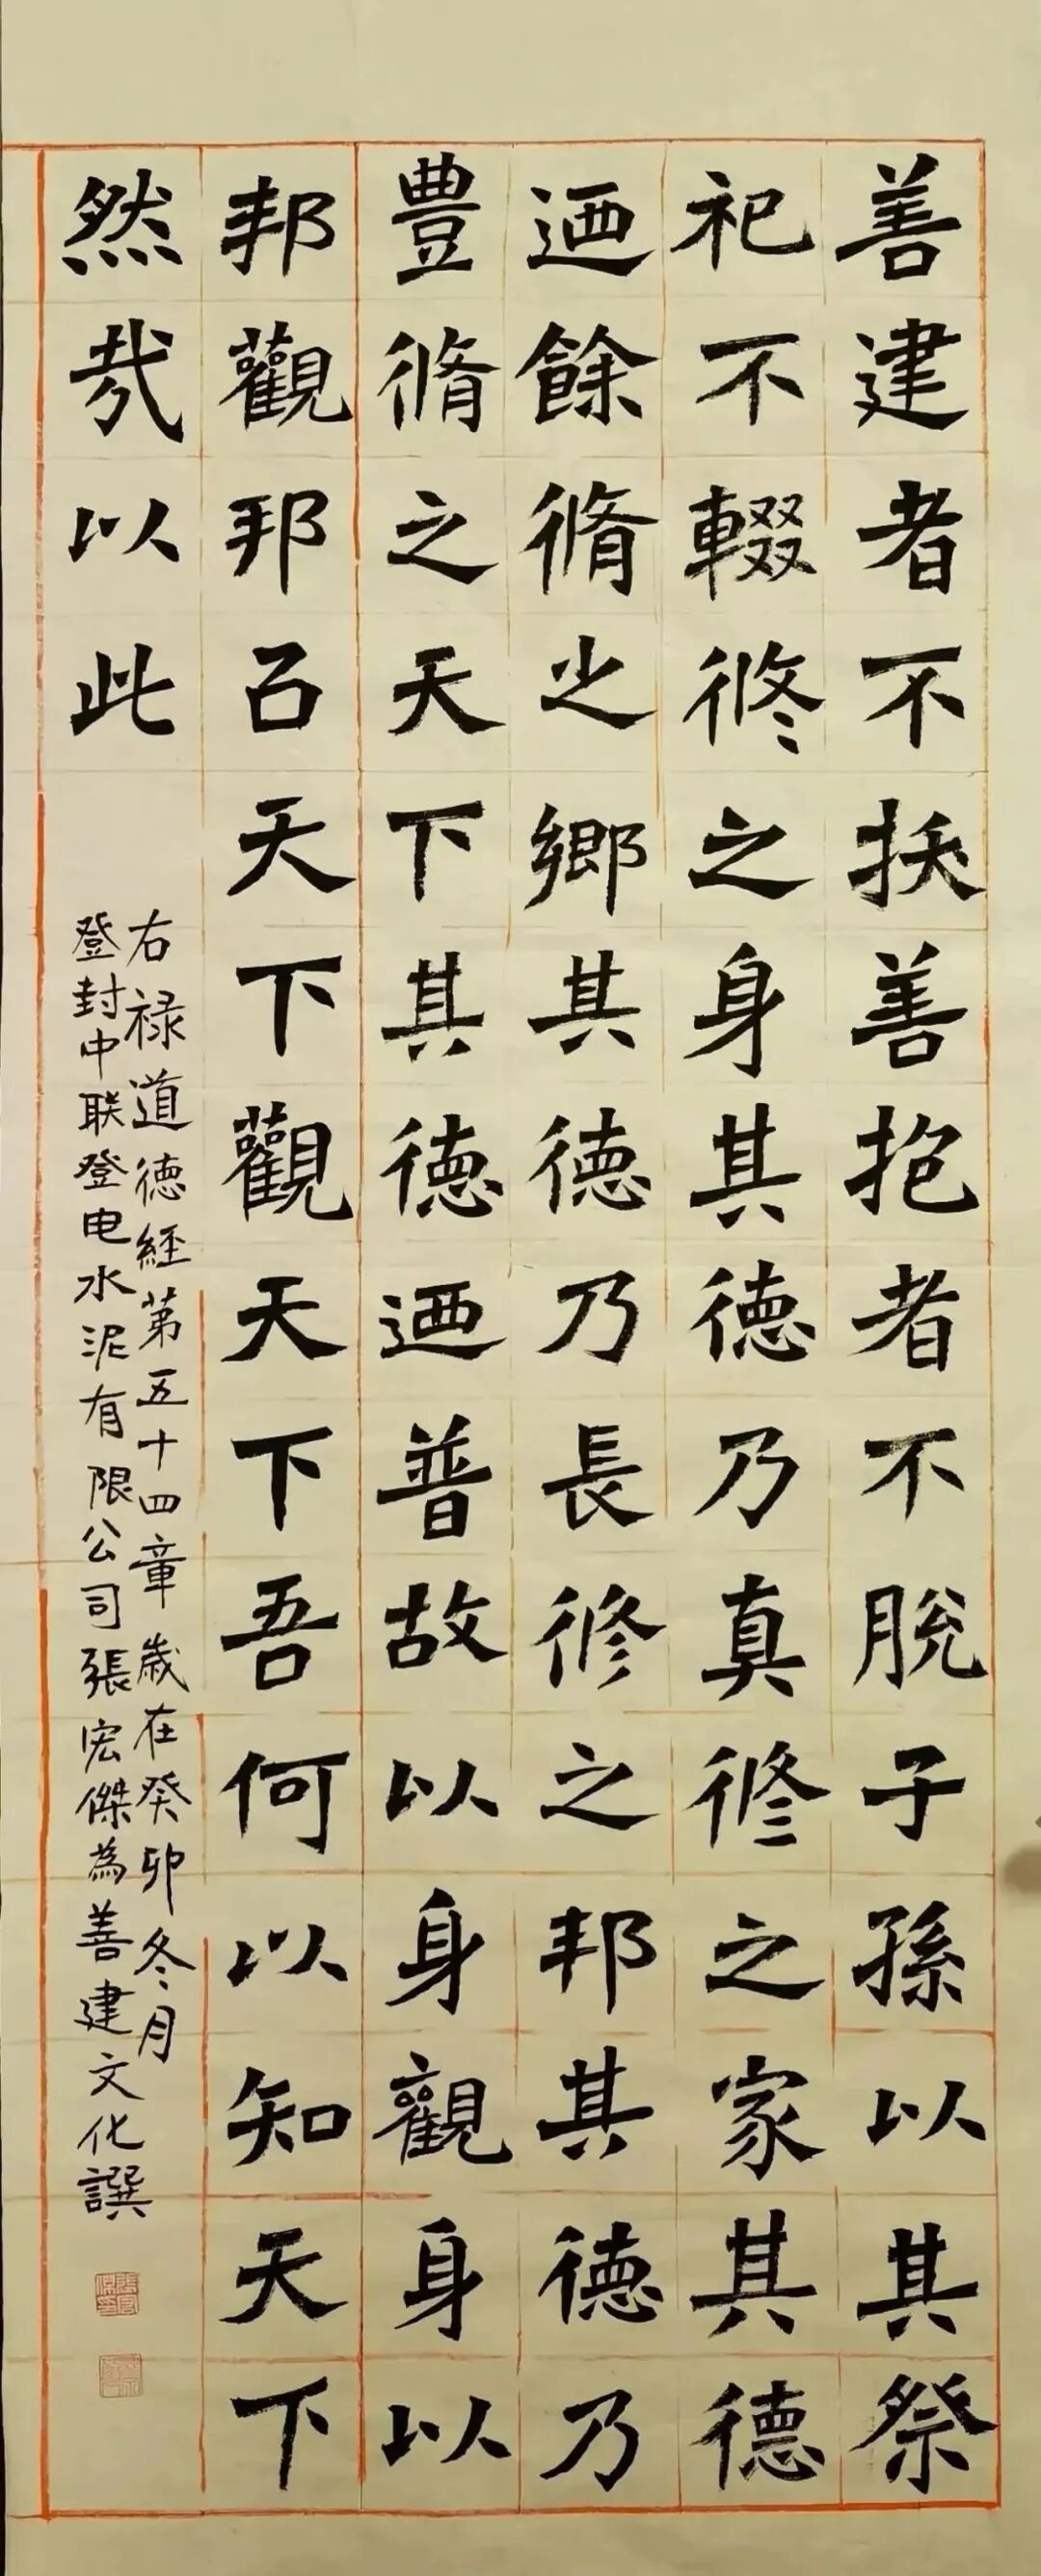 善建者不抚善抱者不脫子孫以其祭
祀不輟脩之身其德乃真脩之家其德
迺餘脩之鄉其德乃長修之邦其德乃
豊脩之天下其德迺普故以身觀身以
邦觀邦㠯天下觀天下吾何以知天下
然哉以此
右禄道德經第五十四章歲在癸卯冬月
登封中联登电水泥有限公司張宏傑為善建文化譔